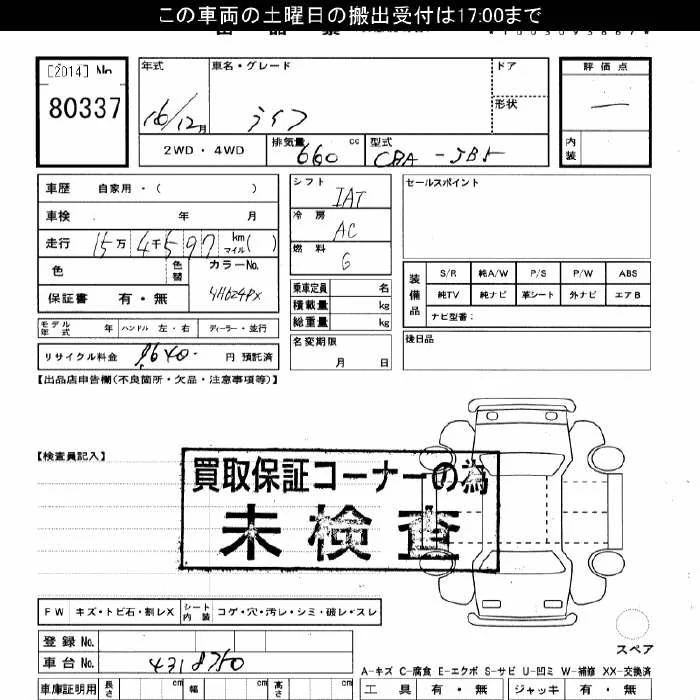 この車両の土曜日の搬出受付は17:00まで
[2014] No
80337
年式
16/12月
車名・グレード
ライフ
ドア
形状
評価点
内装
2WD・4WD
排気量 660 cc
型式 CBA-JB5
車歴 自家用・( )
車検 年 月
走行 15万4千597 km マイル( )
色 色替 カラーNo.
YH624PX
保証書 有・無
モデル年式 年 ハンドル 左・右 ディーラー・並行
リサイクル料金 9640 円 預託済
シフト IAT
冷房 AC
燃料 G
乗車定員 名
積載量 kg
総重量 kg
名変期限
月 日
セールスポイント
装備品
S/R 純A/W P/S P/W ABS
純TV 純ナビ 革シート 外ナビ エアB
ナビ型番:
後日品
【出品店申告欄(不良箇所・欠品・注意事項等)】
【検査員記入】
買取保証コーナーの為
未検査
FW キズ・トビ石・割レX シート内装 コゲ・穴・汚レ・シミ・破レ・スレ
登録No.
車台No. 4318750
スペア
A-キズ C-腐食 E-エクボ S-サビ U-凹ミ W-補修 XX-交換済
車庫証明用 長さ cm 幅 cm 高さ cm
工具 有・無 ジャッキ 有・無